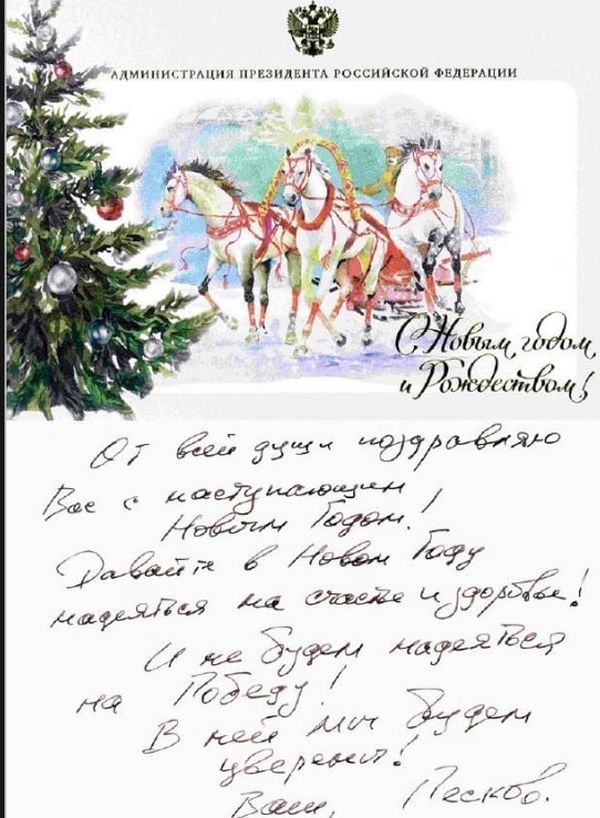 АДМИНИСТРАЦИЯ ПРЕЗИДЕНТА РОССИЙСКОЙ ФЕДЕРАЦИИ
С Новым годом
и Рождеством!
От всей души поздравляю
Вас с наступающим
Новым Годом!
Давайте в Новом Году
надеяться на счастье и здоровье!
И не будем надеяться
на Победу!
В ней мы будем
уверены!
Ваш, Песков.